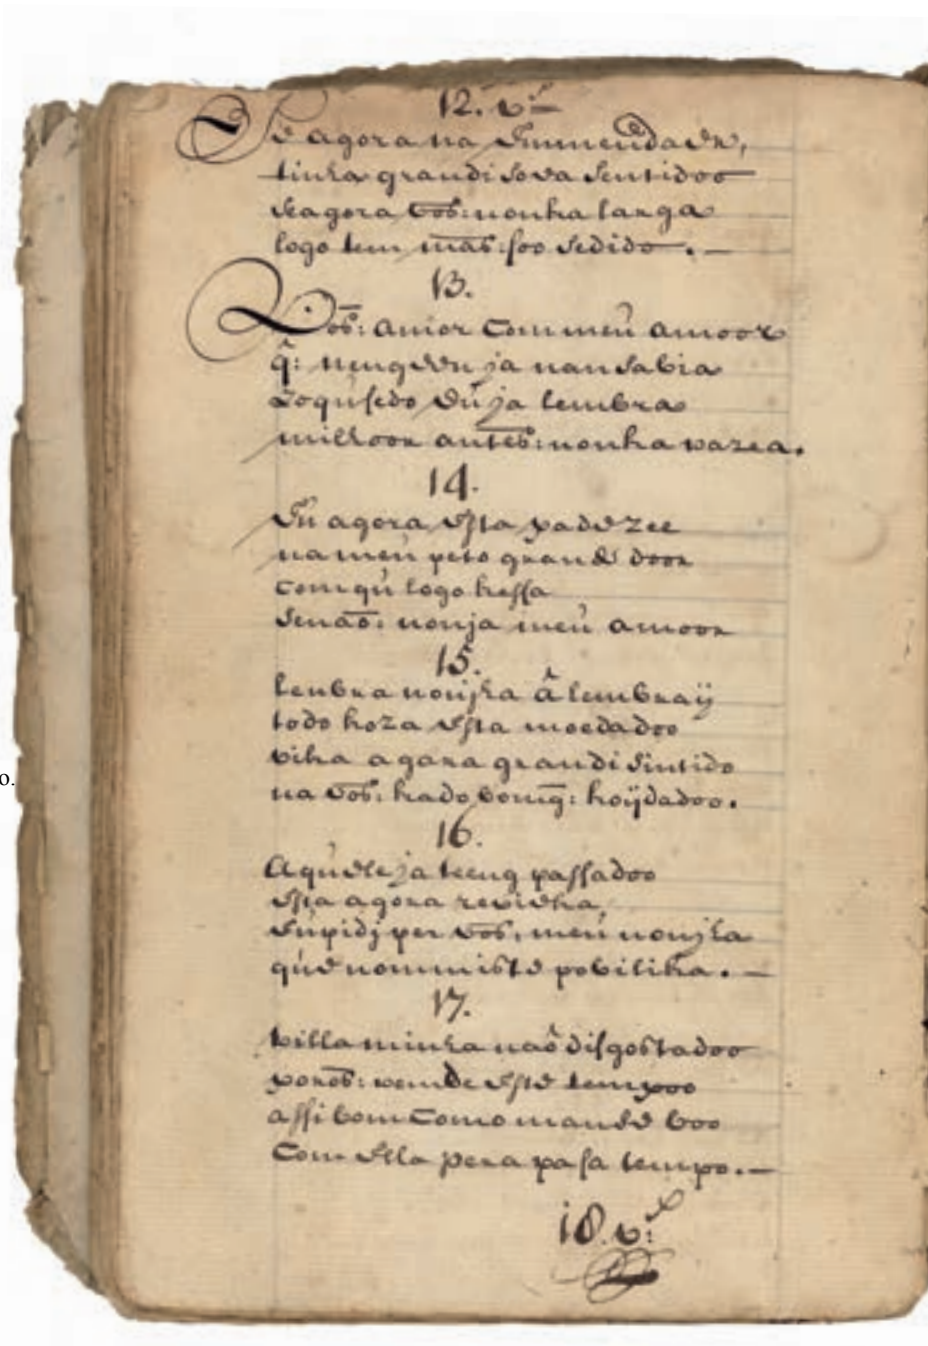 12. v:
Se agora na Emmendade,
tinha grandi sova sentidoo
seagora vos: nonha larga
logo tem mãas: soo sedido. —
13.
Vos: amor Com meu amoor
q: ningeen ja nan sabia
Eu ja lembra
milhoor antes: nonha vazea.
14.
Eu agora esta padezee
na meu peto grande door
com qu logo kessa
Senaõ: nonja meu amoor
15.
lenbra nonjha â lembraÿ
todo hoza esta moedadoo
vika agara grandi sintido
na vos: kado bomq: koÿdadoo.
16.
Aquele ja teeng passadoo
esta agora revidha,
Eu pidj per vos, meu nonjha
que nommiste pobilika. —
17.
billa minha naõ disgostadoo
poros: vemde este tempoo
assi bom Como mande boo
Com ella pera pasa tempo. —
18. v:
o.